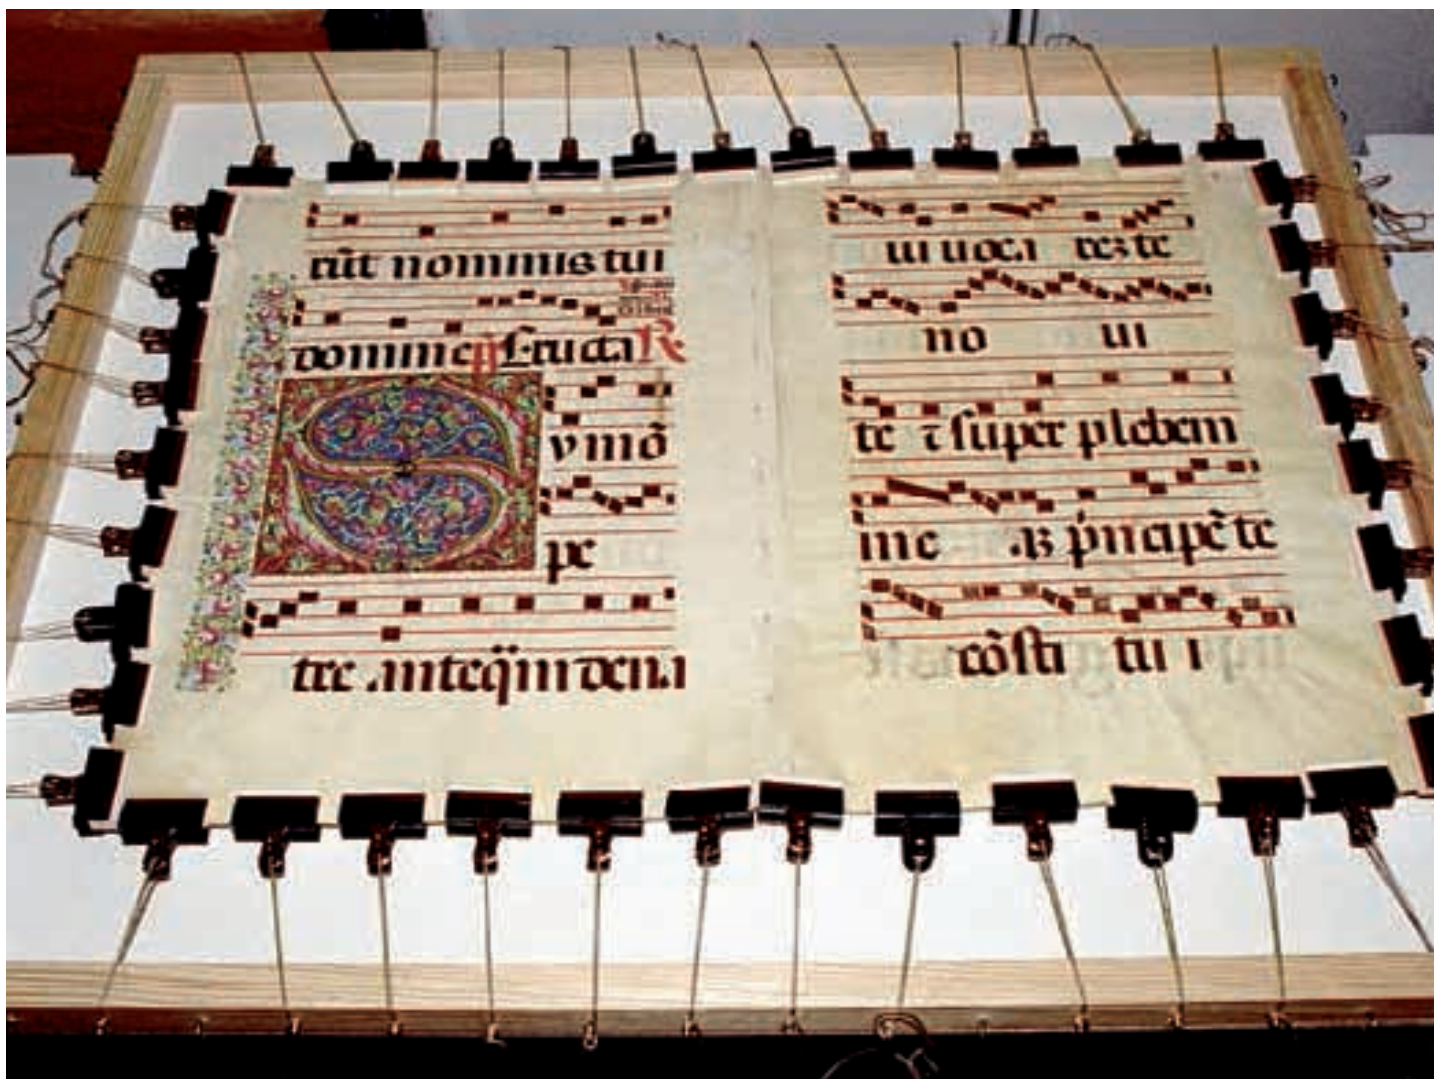 rūt nominis tui
domine p̄s Eructa R
Symō
pe
tre anteq̄m dena
ui uoca rez te
no ui
te ⁊ ſuper plebem
me aʒ p̍ncipē te
cōſti tu i